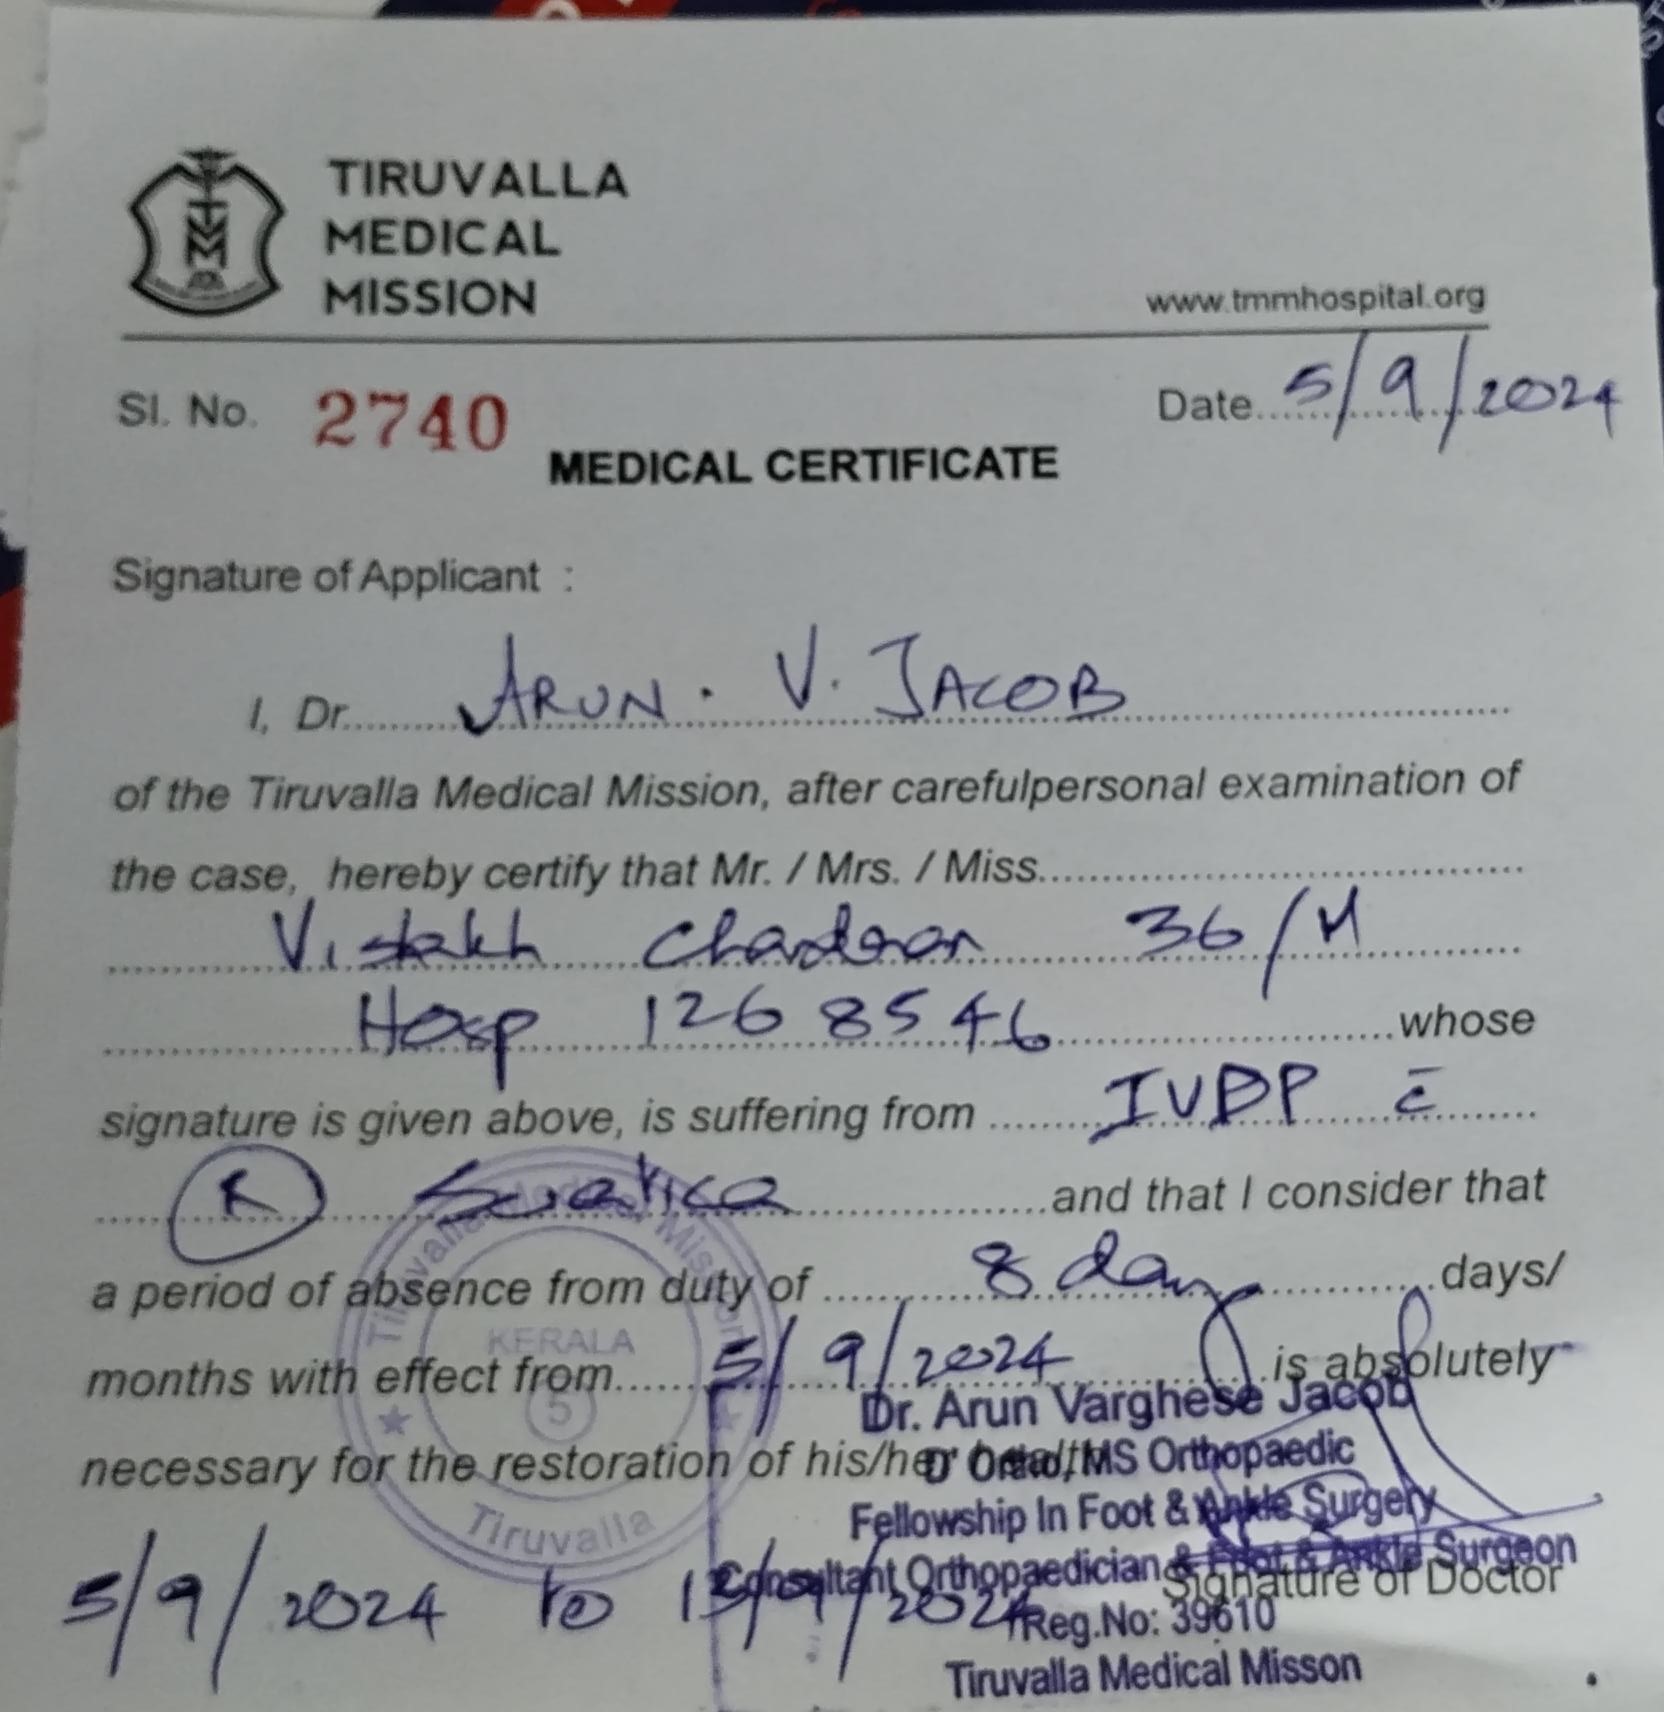 TIRUVALLA
MEDICAL
MISSION
www.tmmhospital.org
Sl. No. 2740
Date 5/9/2024
MEDICAL CERTIFICATE
Signature of Applicant :
I, Dr. ARUN. V. JACOB
of the Tiruvalla Medical Mission, after carefulpersonal examination of
the case, hereby certify that Mr. / Mrs. / Miss.
Vishakh Chandran 36/M
Hosp 1268546 whose
signature is given above, is suffering from IVDP c̄
R Sciatica and that I consider that
a period of absence from duty of 8 days days/
months with effect from 5/9/2024 is absolutely
necessary for the restoration of his/her health
5/9/2024 to 2024
Signature of Doctor
Dr. Arun Varghese Jacob
D Ortho, MS Orthopaedic
Fellowship In Foot & Ankle Surgery
Consultant Orthopaedician & Foot & Ankle Surgeon
Reg.No: 39610
Tiruvalla Medical Misson
Tiruvalla Medical Mission
KERALA
5
Tiruvalla